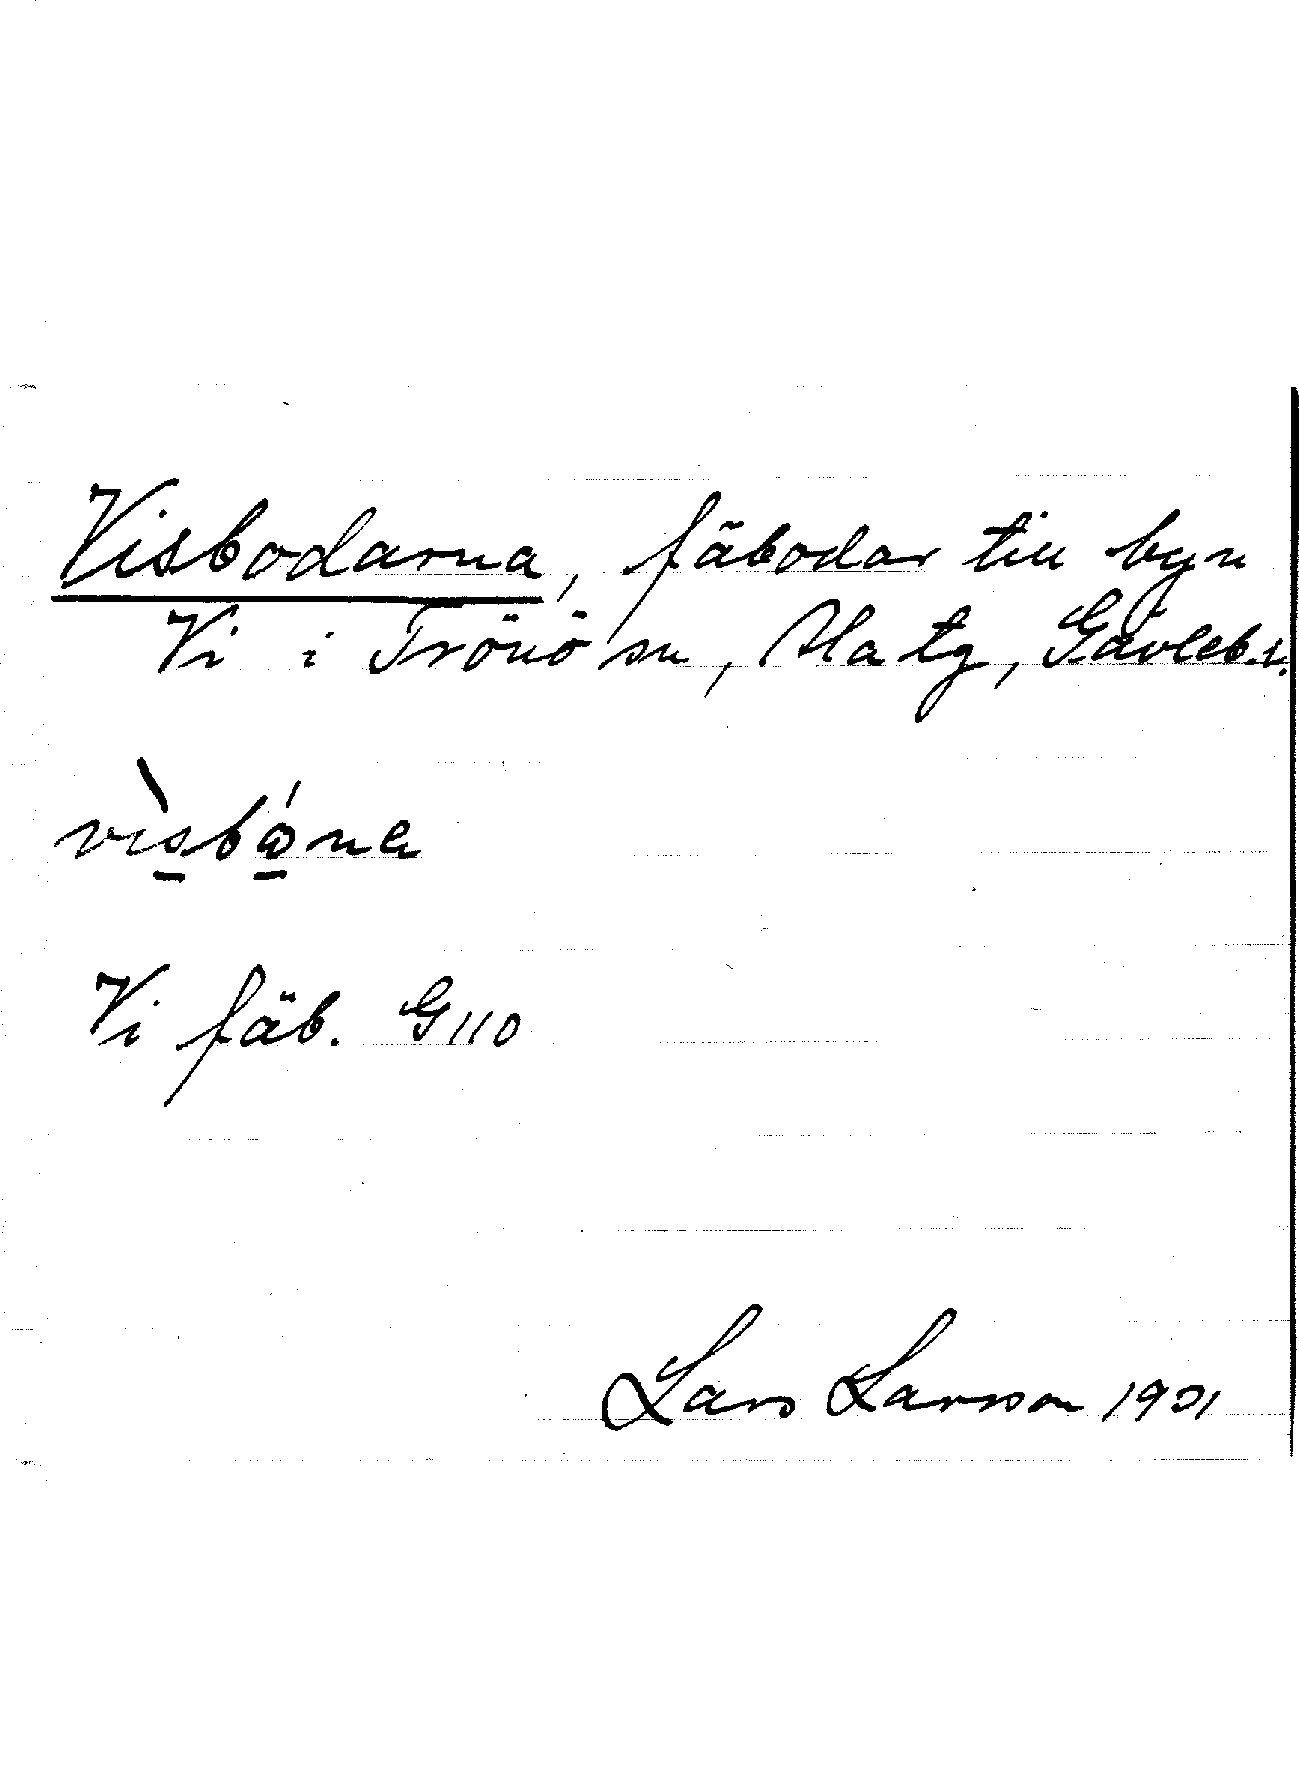 Visbodarna, fäbodar till byn
Vi i Trönö sn, Ala tg, Gävleb. l.
vìsbǿna
Vi fäb. G110
Lars Larsson 1901